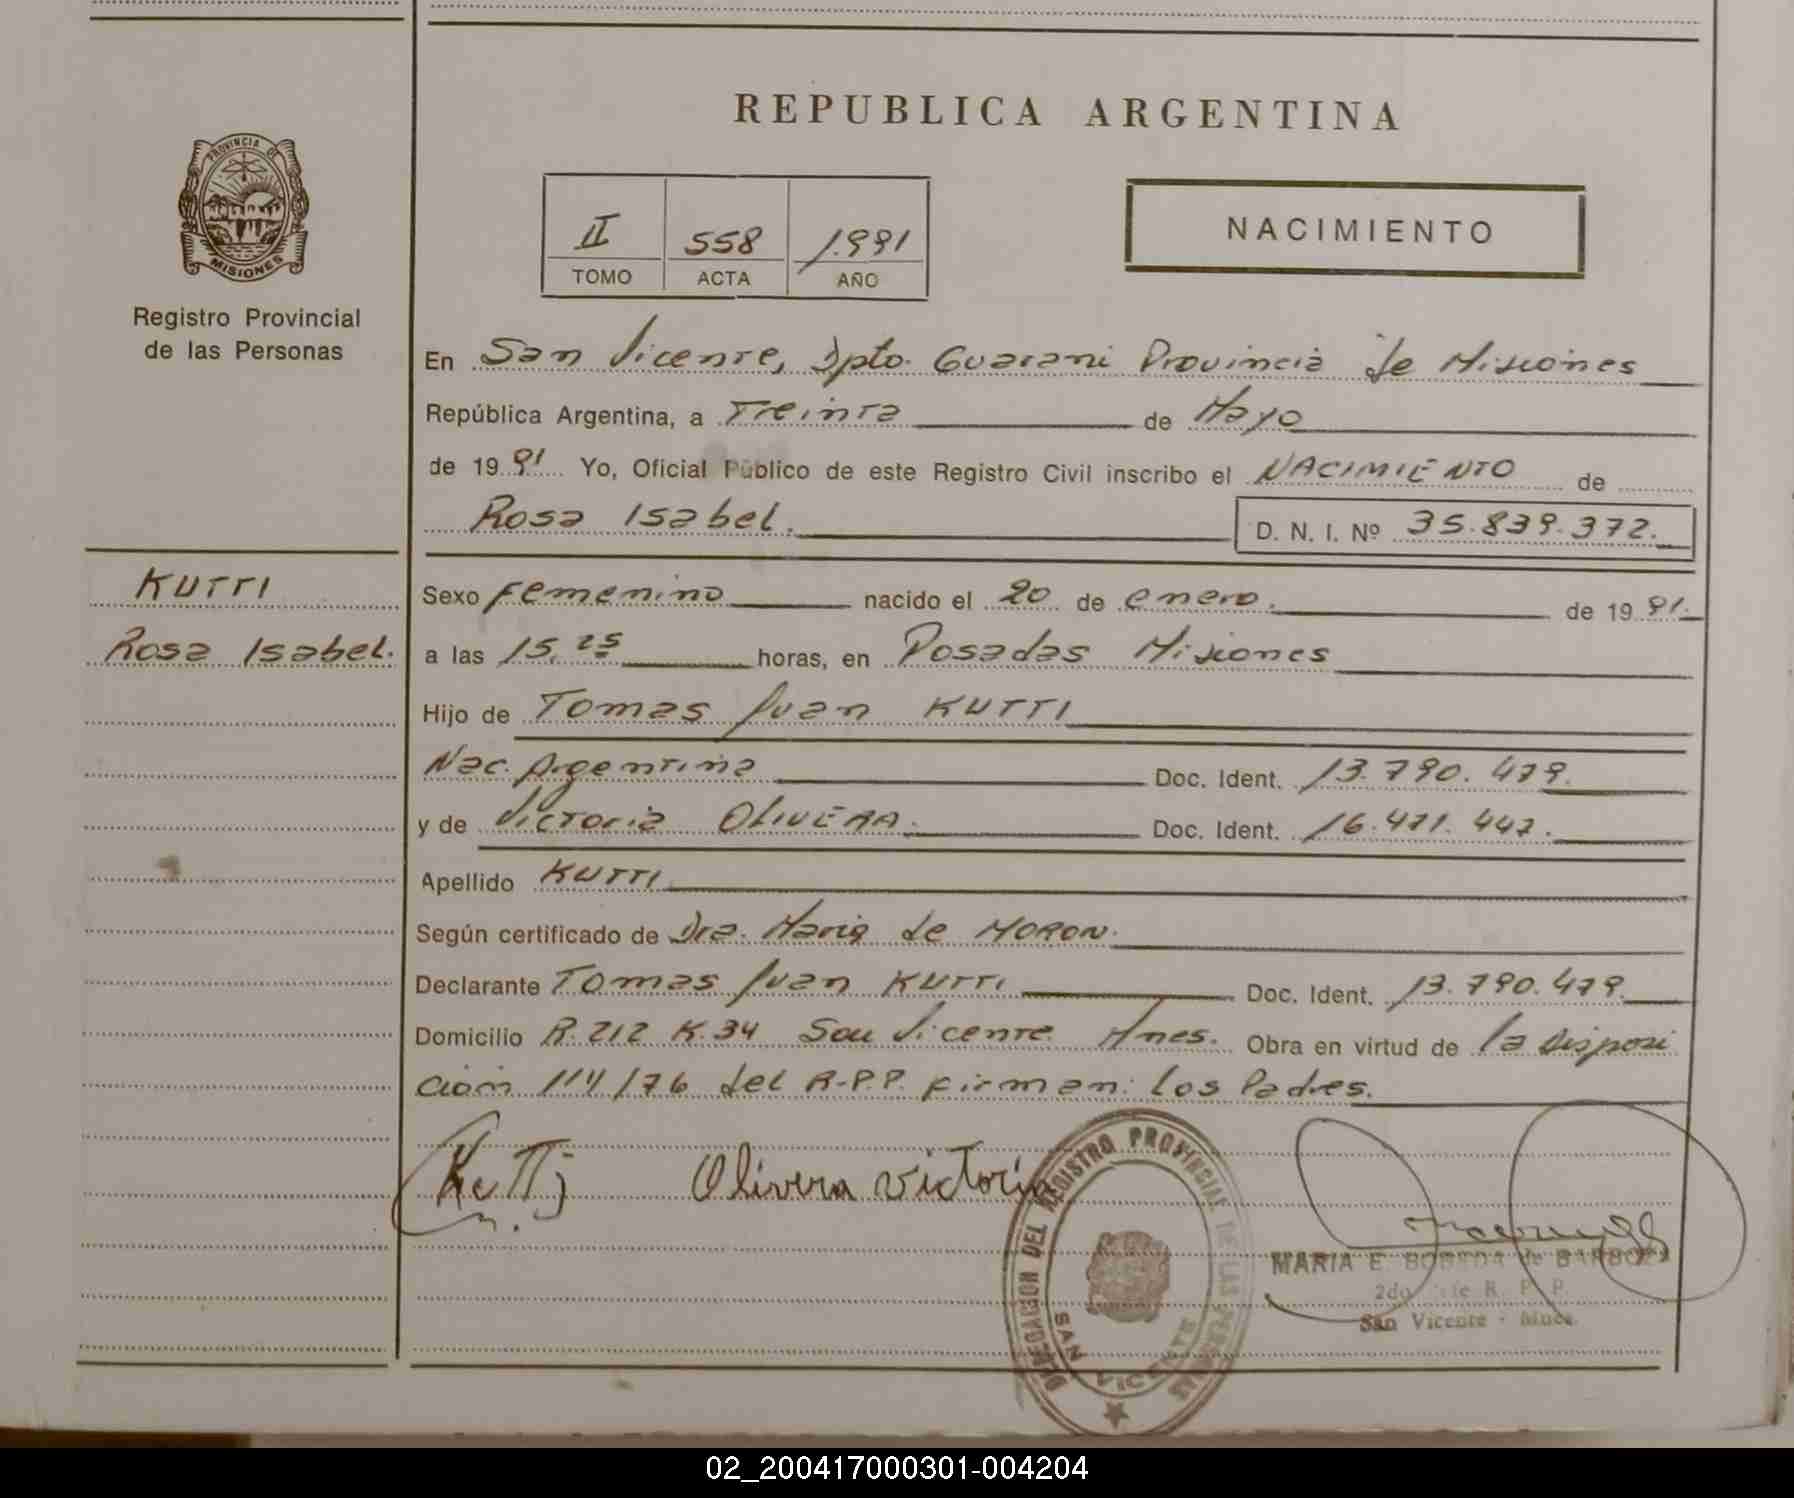 REPUBLICA ARGENTINA
PROVINCIA DE
MISIONES
Registro Provincial
de las Personas
II 558 1.991
TOMO ACTA AÑO
NACIMIENTO
En San Vicente, Dpto. Guarani Provincia de Misiones
República Argentina, a Treinta de Mayo
de 19 91 Yo, Oficial Público de este Registro Civil inscribo el NACIMIENTO de
Rosa Isabel. D. N. I. Nº 35.839.372.
KUTTI
Rosa Isabel.
Sexo Femenino nacido el 20 de enero. de 19 91.
a las 15,25 horas, en Posadas Misiones
Hijo de Tomas Juan KUTTI
Nac. Argentina Doc. Ident. 13.790.479.
y de Victoria OLIVERA. Doc. Ident. 16.471.447.
Apellido KUTTI
Según certificado de Dra. Maria de MORON.
Declarante Tomas Juan KUTTI Doc. Ident. 13.790.479.
Domicilio R. 212 K. 34 San Vicente Mnes. Obra en virtud de la disposi
cion 114/76 del R-P.P. firman: los Padres.
Kutti Olivera Victoria
DELEGACION DEL REGISTRO PROVINCIAL DE LAS PERSONAS
SAN VICENTE
MARIA E. BOBEDA de BARBOZA
2do Jefe R. P. P.
San Vicente - Mnes.
02_200417000301-004204